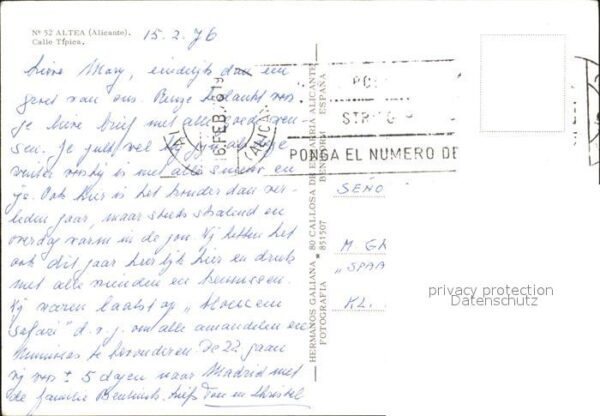 Nº 52 ALTEA (Alicante).
Calle Típica.
15.2.76
Lieve Mary, eindelijk dan een
groet van ons. Benze bedankt voor
je lieve brief met alle goede wen-
sen. Je zult wel blij zijn als de
winter voorbij is met alle sneeuw en
ijs. Ook hier is het kouder dan ver-
leden jaar, maar steeds stralend en
overdag warm in de zon. Wij hebben het
ook dit jaar heerlijk hier en druk
met alle vrienden en kennissen.
Wij waren laatst op "bloesem
safari" d.w.z. om alle amandelen en
mimosas te bewonderen. De 22. gaan
wij voor ± 5 dagen naar Madrid met
de familie liefs Ton en Christel
HERMANOS GALIANA * 80 CALLOSA DE ENSARRIA ALICANTE
FOTOGRAFIA 851507 BENIDORM ESPAÑA
16 FEB. 76
(ALICANTE)
PONGA EL NUMERO DE
SEÑO
M. GR
"SPAA
KL.
privacy protection
Datenschutz